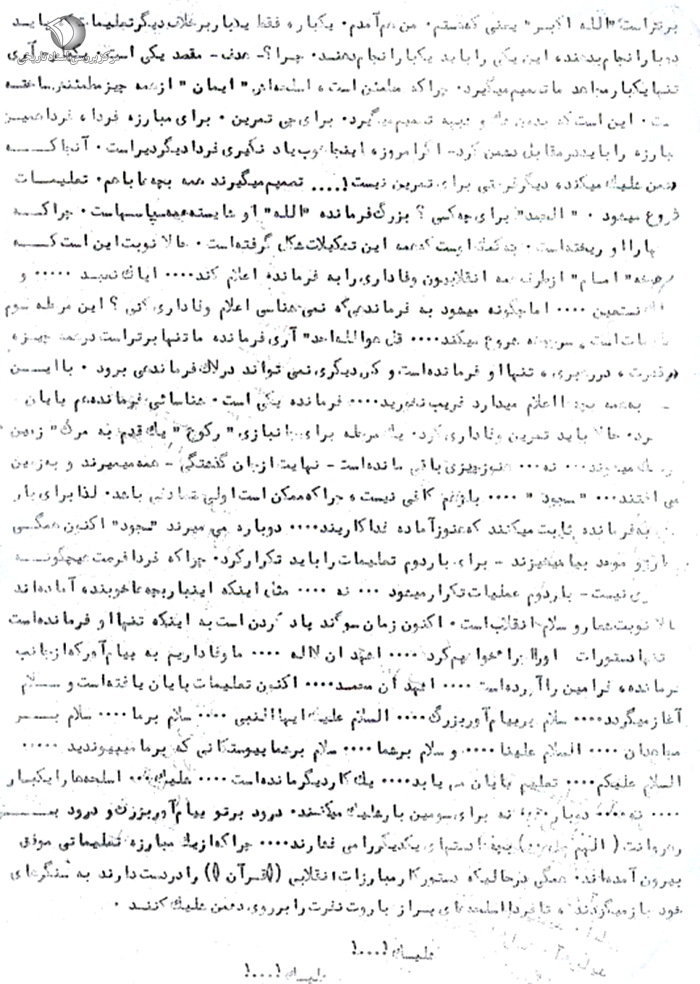 برتر است "الله اکبر" یعنی که هستم. من هم آمدم. یکباره فقط یکبار برخلاف دیگر تعلیمات باید
مرکز بررسی اسناد تاریخی
دوبار انجام بدهند، این یکی را باید یکبار انجام دهند. چرا؟ - هدف - مقصد یکی است. آری
تنها یکبار مجاهد ما تصمیم میگیرد. چرا که مطمئن است، اسلحه‌اش "ایمان" از همه چیز مطمئنتر ساخته
ست. این است که تصمیم میگیرد. برای چی تمرین. برای مبارزه فردا، فردا همین
مبارزه را باید در مقابل دشمن کرد - اگر امروزه اینجا خوب یاد نگیری فردا دیگر دیر است. آنجا که
دشمن شلیک میکند، دیگر فرصتی برای تمرین نیست!.... تصمیم میگیرند همه بچه‌ها باهم. تعلیمات
شروع میشود. "الحمد" برای چه کسی؟ بزرگ فرمانده "الله" او شایسته همه سپاسهاست. چرا که
او ریخته است. به کمک اوست که همه این تشکیلات شکل گرفته است. حالا نوبت این است که
"امام" از طرف همه انقلابیون وفاداری را به فرمانده اعلام کند.... ایاک نعبد ..... و
ایاک نستعین .... اما چگونه میشود به فرماندهی که نمی‌شناسی اعلام وفاداری کنی؟ این مرحله سوم
تعلیمات است شروع میکند.... قل هو الله احد" آری فرمانده ما تنها برتر است در همه چیزه
در قدرت، در رهبری، تنها او فرمانده است و کس دیگری نمی تواند در لاک فرماندهی برود. با این
به همه بچه‌ها اعلام میدارد فریب نخورید.... فرمانده یکی است. شناسائی فرمانده هم پایان
حالا باید تمرین وفاداری کرد. یک مرحله برای جانبازی "رکوع" یک قدم به مرگ" زمین
... نه... هنوز چیزی باقی مانده است - نهایت از جان گذشتگی - همه میمیرند و به زمین
می افتند... "سجود" .... بازهم کافی نیست، چرا که ممکن است اولی تصادفی باشد. لذا برای بار
به فرمانده ثابت میکنند که هنوز آماده فداکاریند.... دوباره می میرند "سجود" اکنون همگی
بپا میخیزند - برای بار دوم تعلیمات را باید تکرار کرد. چرا که فردا فرصت هیچگونه
نیست - بار دوم عملیات تکرار میشود ... نه .... مثل اینکه اینبار بچه‌ها خوبند، آماده‌اند
حالا نوبت شعار و سلام انقلاب است. اکنون زمان سوگند یاد کردن است به اینکه تنها او فرمانده است
تنها دستورات اورا اجرا خواهیم کرد .... اشهد ان لااله .... ما وفاداریم به پیام آور که از جانب
فرمانده، فرامین را آورده است .... اشهد ان محمد.... اکنون تعلیمات پایان یافته است و سلام
آغاز میگردد.... سلام بر پیام آور بزرگ.... السلام علیک ایها النبی .... سلام برما .... سلام بر
مجاهدان .... السلام علینا .... و سلام برشما .... سلام برشما پیوستگانی که برما میپیوندید .....
السلام علیکم.... تعلیم پایان می یابد.... یک کار دیگر مانده است .... شلیک... اسلحه‌ها را یکبار
.... نه.... دوبار نه برای سومین بار شلیک میکنند. درود برتو پیام آور بزرگ و درود بر
رهروانت (اللهم) بچه‌ها دستهای یکدیگر را می فشارند.... چرا که از یک مبارزه تعلیماتی موفق
بیرون آمده‌اند. همگی درحالیکه دستور کار مبارزات انقلابی ((قرآن)) را دردست دارند به سنگرهای
خود بازمیگردند، تا فردا اسلحه‌های پر از باروت نفرت را برروی دشمن شلیک کنند.
شلیک!...!
شلیک!...!